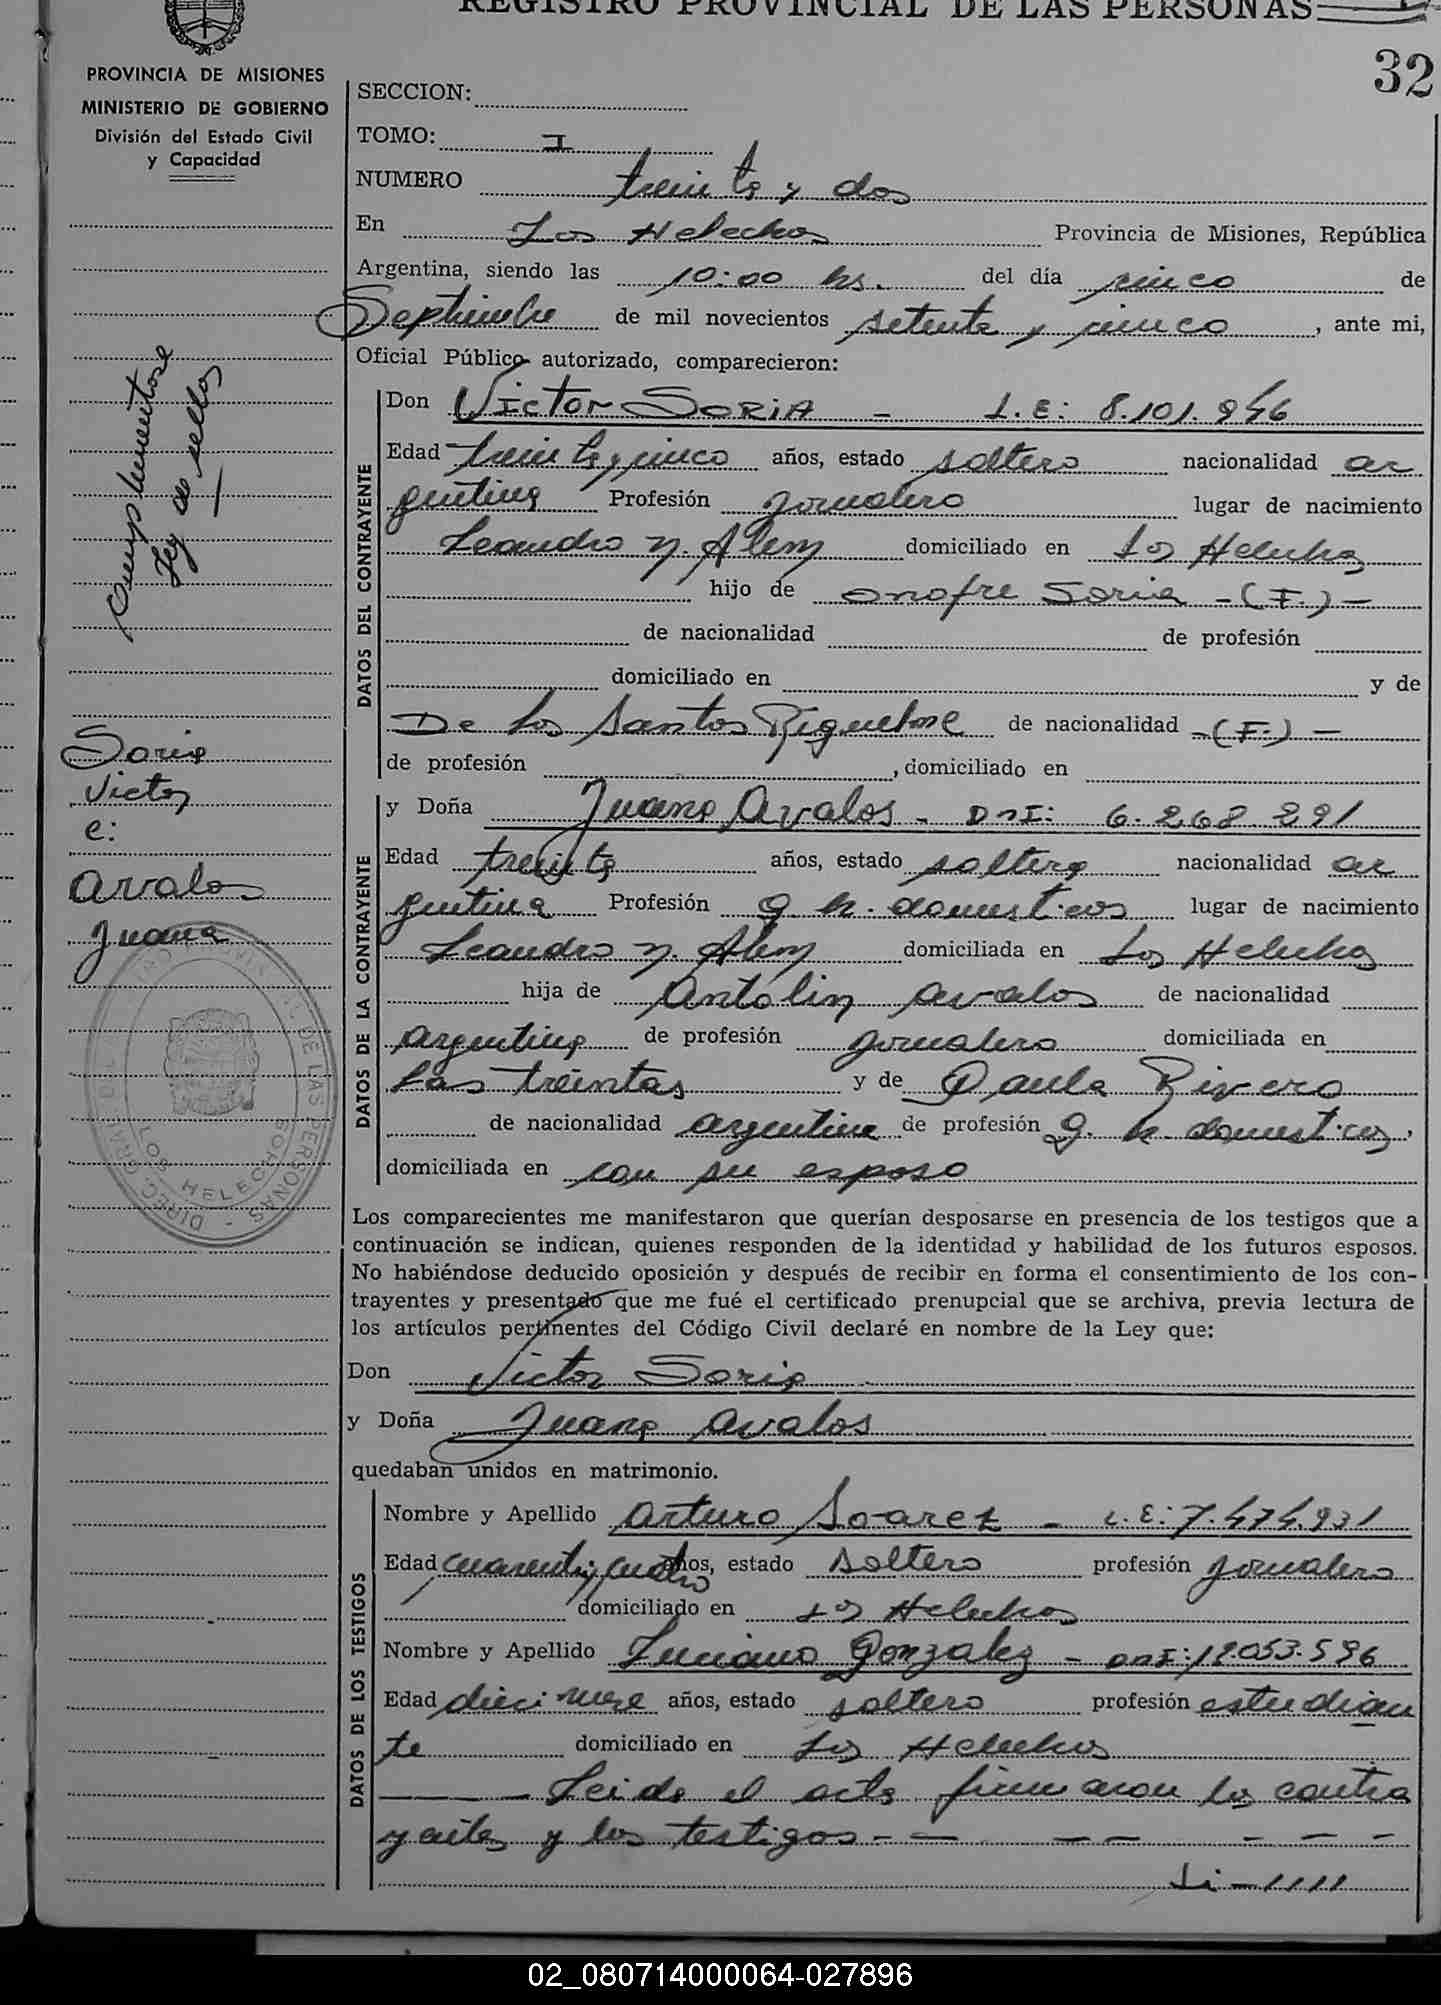 REGISTRO PROVINCIAL DE LAS PERSONAS
32
PROVINCIA DE MISIONES
MINISTERIO DE GOBIERNO
División del Estado Civil
y Capacidad
Ley de sellos
Soria
Victor
e:
Avalos
Juana
LOS HELECHOS
SECCION:
TOMO: I
NUMERO treinta y dos
En Los Helechos Provincia de Misiones, República
Argentina, siendo las 10:00 hs. del día cinco de
Septiembre de mil novecientos setenta y cinco, ante mi,
Oficial Público autorizado, comparecieron:
DATOS DEL CONTRAYENTE
Don Victor SORIA - L.E: 8.101.946
Edad treinta y cinco años, estado soltero nacionalidad ar
gentina Profesión jornalero lugar de nacimiento
Leandro N. Alem domiciliado en Los Helechos
hijo de Onofre Soria -(F.)-
de nacionalidad de profesión
domiciliado en y de
De Los Santos Riquelme de nacionalidad -(F.)-
de profesión , domiciliado en
DATOS DE LA CONTRAYENTE
y Doña Juana Avalos - DNI: 6.268.291
Edad treinta años, estado soltera nacionalidad ar
gentina Profesión q. h. domesticos lugar de nacimiento
Leandro N. Alem domiciliada en Los Helechos
hija de Antolin Avalos de nacionalidad
argentina de profesión jornalero domiciliada en
Las treintas y de Paula Rivero
de nacionalidad argentina de profesión q. h. domesticos,
domiciliada en con su esposo
Los comparecientes me manifestaron que querían desposarse en presencia de los testigos que a
continuación se indican, quienes responden de la identidad y habilidad de los futuros esposos.
No habiéndose deducido oposición y después de recibir en forma el consentimiento de los con-
trayentes y presentado que me fué el certificado prenupcial que se archiva, previa lectura de
los artículos pertinentes del Código Civil declaré en nombre de la Ley que:
Don Victor Soria
y Doña Juana Avalos
quedaban unidos en matrimonio.
DATOS DE LOS TESTIGOS
Nombre y Apellido Arturo Soarez - L.E: 7.474.931
Edad cuarenta y cuatro años, estado soltero profesión jornalero
domiciliado en Los Helechos
Nombre y Apellido Luciano Gonzalez - DNI: 12.053.596
Edad diecinueve años, estado soltero profesión estudian
te domiciliado en Los Helechos
Leida el acta firmaron los contra
yentes y los testigos - - - - - - -
02_080714000064-027896